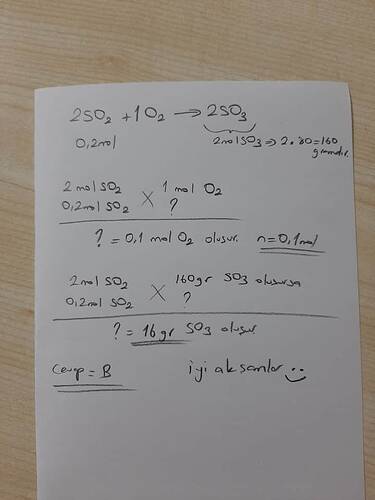 2SO₂ + 1O₂ → 2SO₃
0,2mol
2mol SO₃ ⇒ 2.80=160
gramdır.
2 mol SO₂ 1 mol O₂
0,2mol SO₂ X ?
? = 0,1 mol O₂ oluşur. n=0,1mol
2mol SO₂ 160gr SO₃ oluşursa
0,2mol SO₂ X ?
? = 16gr SO₃ oluşur.
Cevap = B iyi akşamlar